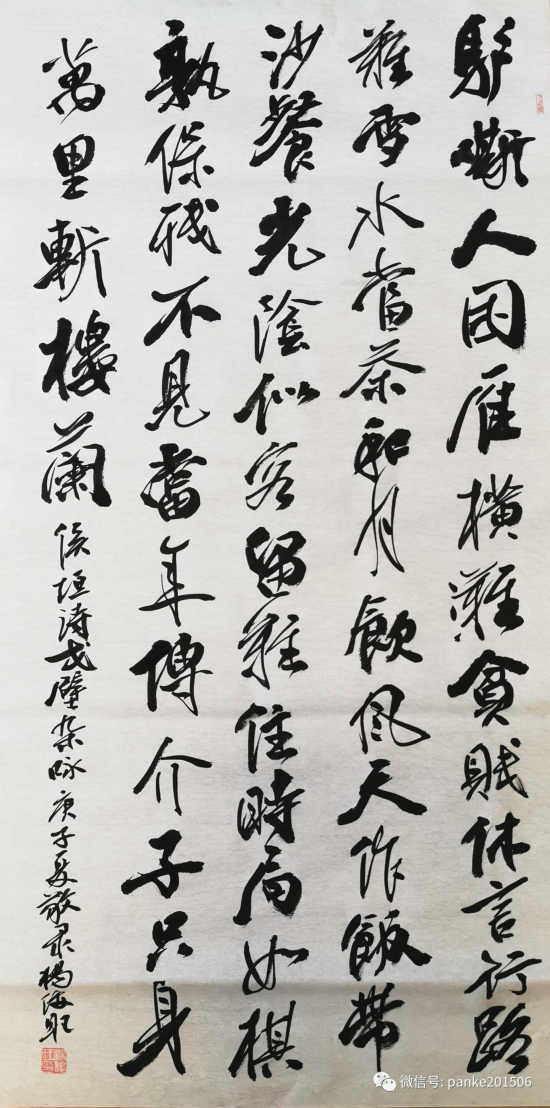 馿嘶人困雁橫灘貧賤休言行路
難雪水當茶和月飲風天作飯帶
沙餐光陰似客留難住時局如棋
孰保残不見當年傅介子只身
萬里斬樓蘭 侯垣诗戈壁杂咏庚子夏敬录楊海
微信号: panke201506